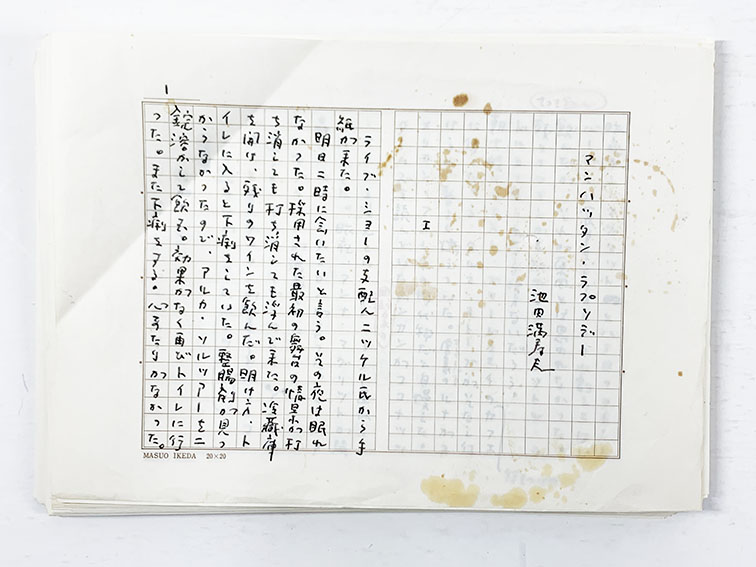 1
マンハッタン・ラプソデー
池田満寿夫
I
ライブ・ショーの支配人ニッケル氏から手
紙が来た。
明日二時に会いたいと言う。その夜は眠れ
なかった。採用された最初の舞台の情景が打
ち消しても打ち消しても浮んで来た。冷蔵庫
を開け、残りのワインを飲んだ。明け方、ト
イレに入ると下痢をしていた。整腸剤が見つ
からなかったので、アルカ・ソルツアーを二
錠溶かして飲む。効果がなく再びトイレに行
った。また下痢をする。心当たりがなかった。
MASUO IKEDA 20×20